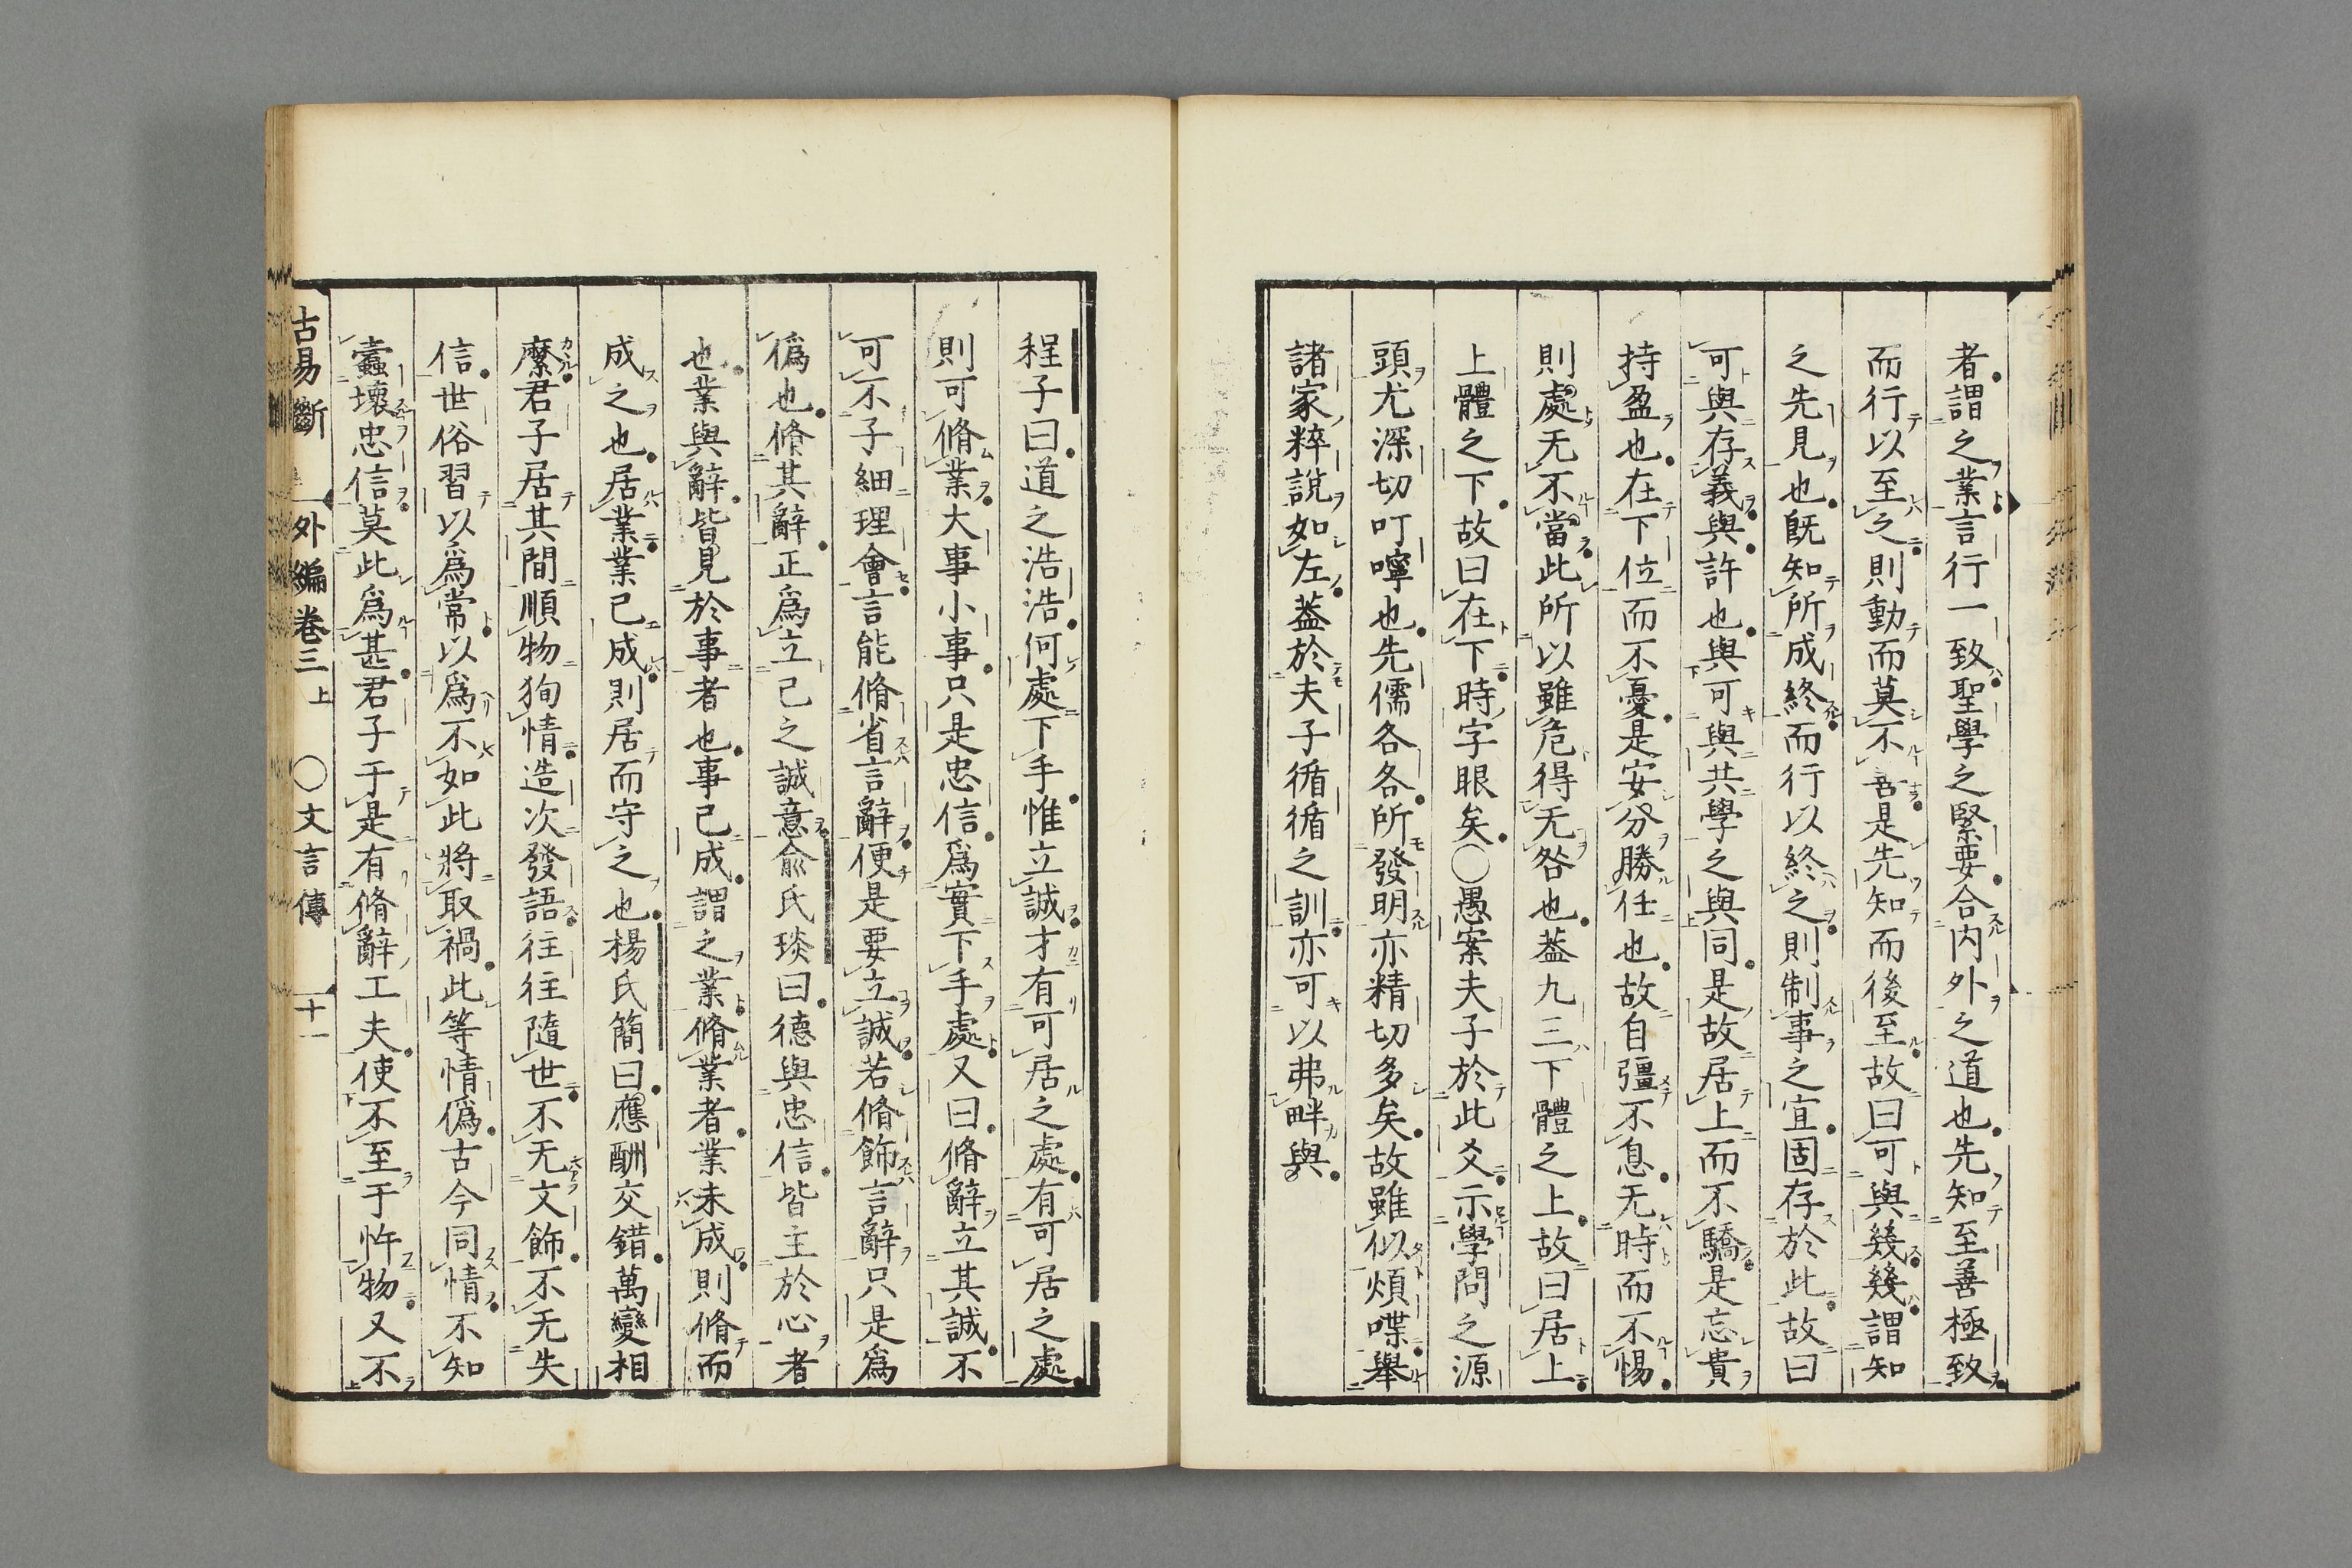 者謂之業言行一致聖學之緊要合内外之道也先知至善極致
而行以至之則動而莫不善是先知而後至故曰可與幾幾謂知
之先見也既知所成終而行以終之則制事之宜固存於此故曰
可與存義與許也與可與共學之與同是故居上而不驕是忘貴
持盈也在下位而不憂是安分勝任也故自彊不息无時而不惕
則處无不當此所以雖危得无咎也葢九三下體之上故曰居上
上體之下故曰在下時字眼矣○愚案夫子於此爻示學問之源
頭尤深切叮嚀也先儒各各所發明亦精切多矣故雖似煩喋舉
諸家粹説如左葢於夫子循循之訓亦可以弗畔與
程子曰道之浩浩何處下手惟立誠才有可居之處有可居之處
則可脩業大事小事只是忠信爲實下手處又曰脩辭立其誠不
可不子細理會言能脩省言辭便是要立誠若脩飾言辭只是爲
僞也脩其辭正爲立己之誠意兪氏琰曰德與忠信皆主於心者
也業與辭皆見於事者也事已成謂之業脩業者業未成則脩而
成之也居業業已成則居而守之也楊氏簡曰應酬交錯萬變相
縻君子居其間順物狥情造次發語往往隨世不无文飾不无失
信世俗習以爲常以爲不如此將取禍此等情僞古今同情不知
蠹壞忠信莫此爲甚君子于是有脩辭工夫使不至于忤物又不
古易斷 外編卷三上 ○文言傳 十一